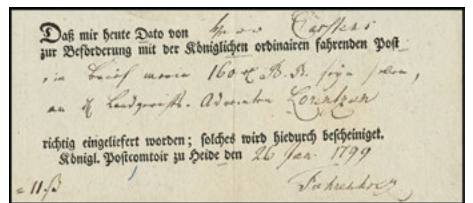 Daß mir heute Dato von Herr Carstens
zur Beförderung mit der Königlichen ordinairen fahrenden Post
ein Brief worin 160 B. R. seyn sollen,
an Landgerichts-Advocaten Lorentzen
richtig eingeliefert worden; solches wird hiedurch bescheiniget.
Königl. Postcomtoir zu Heide den 26 Jan. 1799
= 11 ß